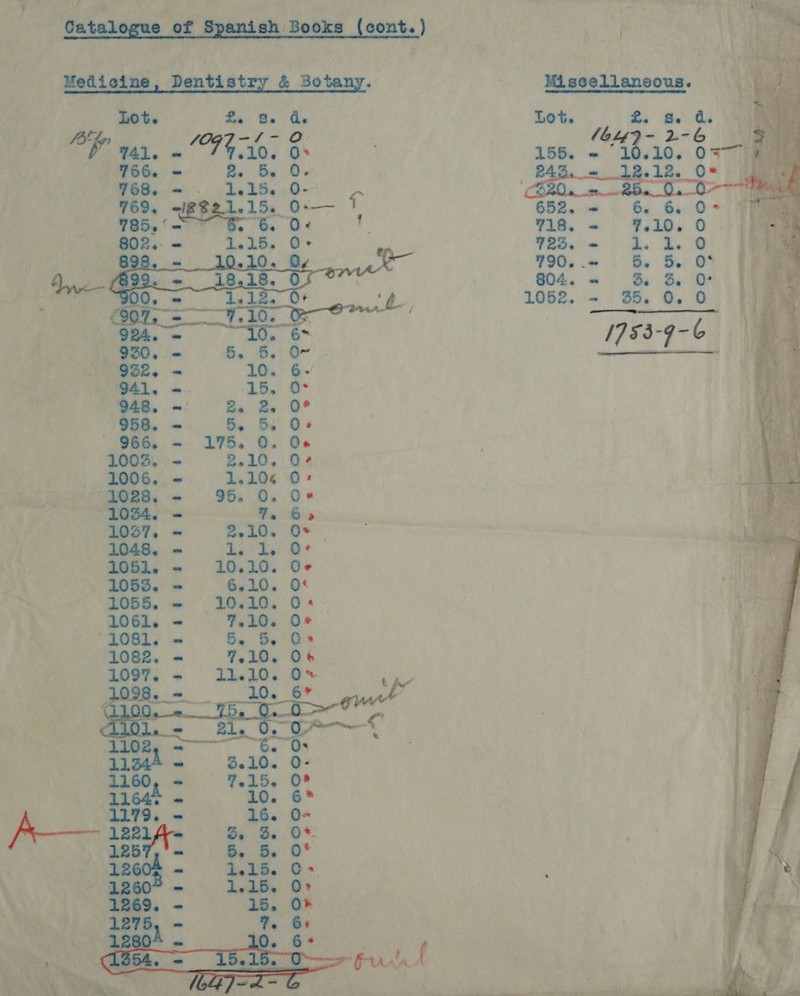 Catalogue of Spanish Books (cont.)
Medicine, Dentistry & Botany.
Lot. £. s. d.
1097-1-0
741. - 7.10. 0
766. - 2. 5. 0.
768. - 1.15. 0-
769. - 1882 1.15. 0
785. - 6. 6. 0
802. - 1.15. 0
898. - 10.10. 0
899. - 18.18. 0 omit
900. - 1.12. 0
(907. - 7.10. 0 omit
924. - 10. 6
930. - 5. 5. 0
932. - 10. 6
941. - 15. 0
948. - 2. 2. 0
958. - 5. 5. 0
966. - 175. 0. 0
1003. - 2.10. 0
1006. - 1.10. 0
1028. - 95. 0. 0
1034. - 7. 6
1037. - 2.10. 0
1048. - 1. 1. 0
1051. - 10.10. 0
1053. - 6.10. 0
1055. - 10.10. 0
1061. - 7.10. 0
1081. - 5. 5. 0
1082. - 7.10. 0
1097. - 11.10. 0
1098. - 10. 6
(1100. - 75. 0. 0 omit
(1101. - 21. 0. 0
1102. - 6. 0
1134A - 3.10. 0
1160. - 7.15. 0
1164A - 10. 6
1179. - 16. 0
A 1221A - 3. 3. 0
1257. - 5. 5. 0
1260A - 1.15. 0
1260B - 1.15. 0
1269. - 15. 0
1275. - 7. 6
1280A - 10. 6
(1354. - 15.15. 0 omit
1647-2-6
Miscellaneous.
Lot. £. s. d.
1647-2-6
155. - 10.10. 0
243. - 12.12. 0
(320. - 25. 0. 0
652. - 6. 6. 0
718. - 7.10. 0
723. - 1. 1. 0
790. - 5. 5. 0
804. - 3. 3. 0
1052. - 35. 0. 0
1753-9-6